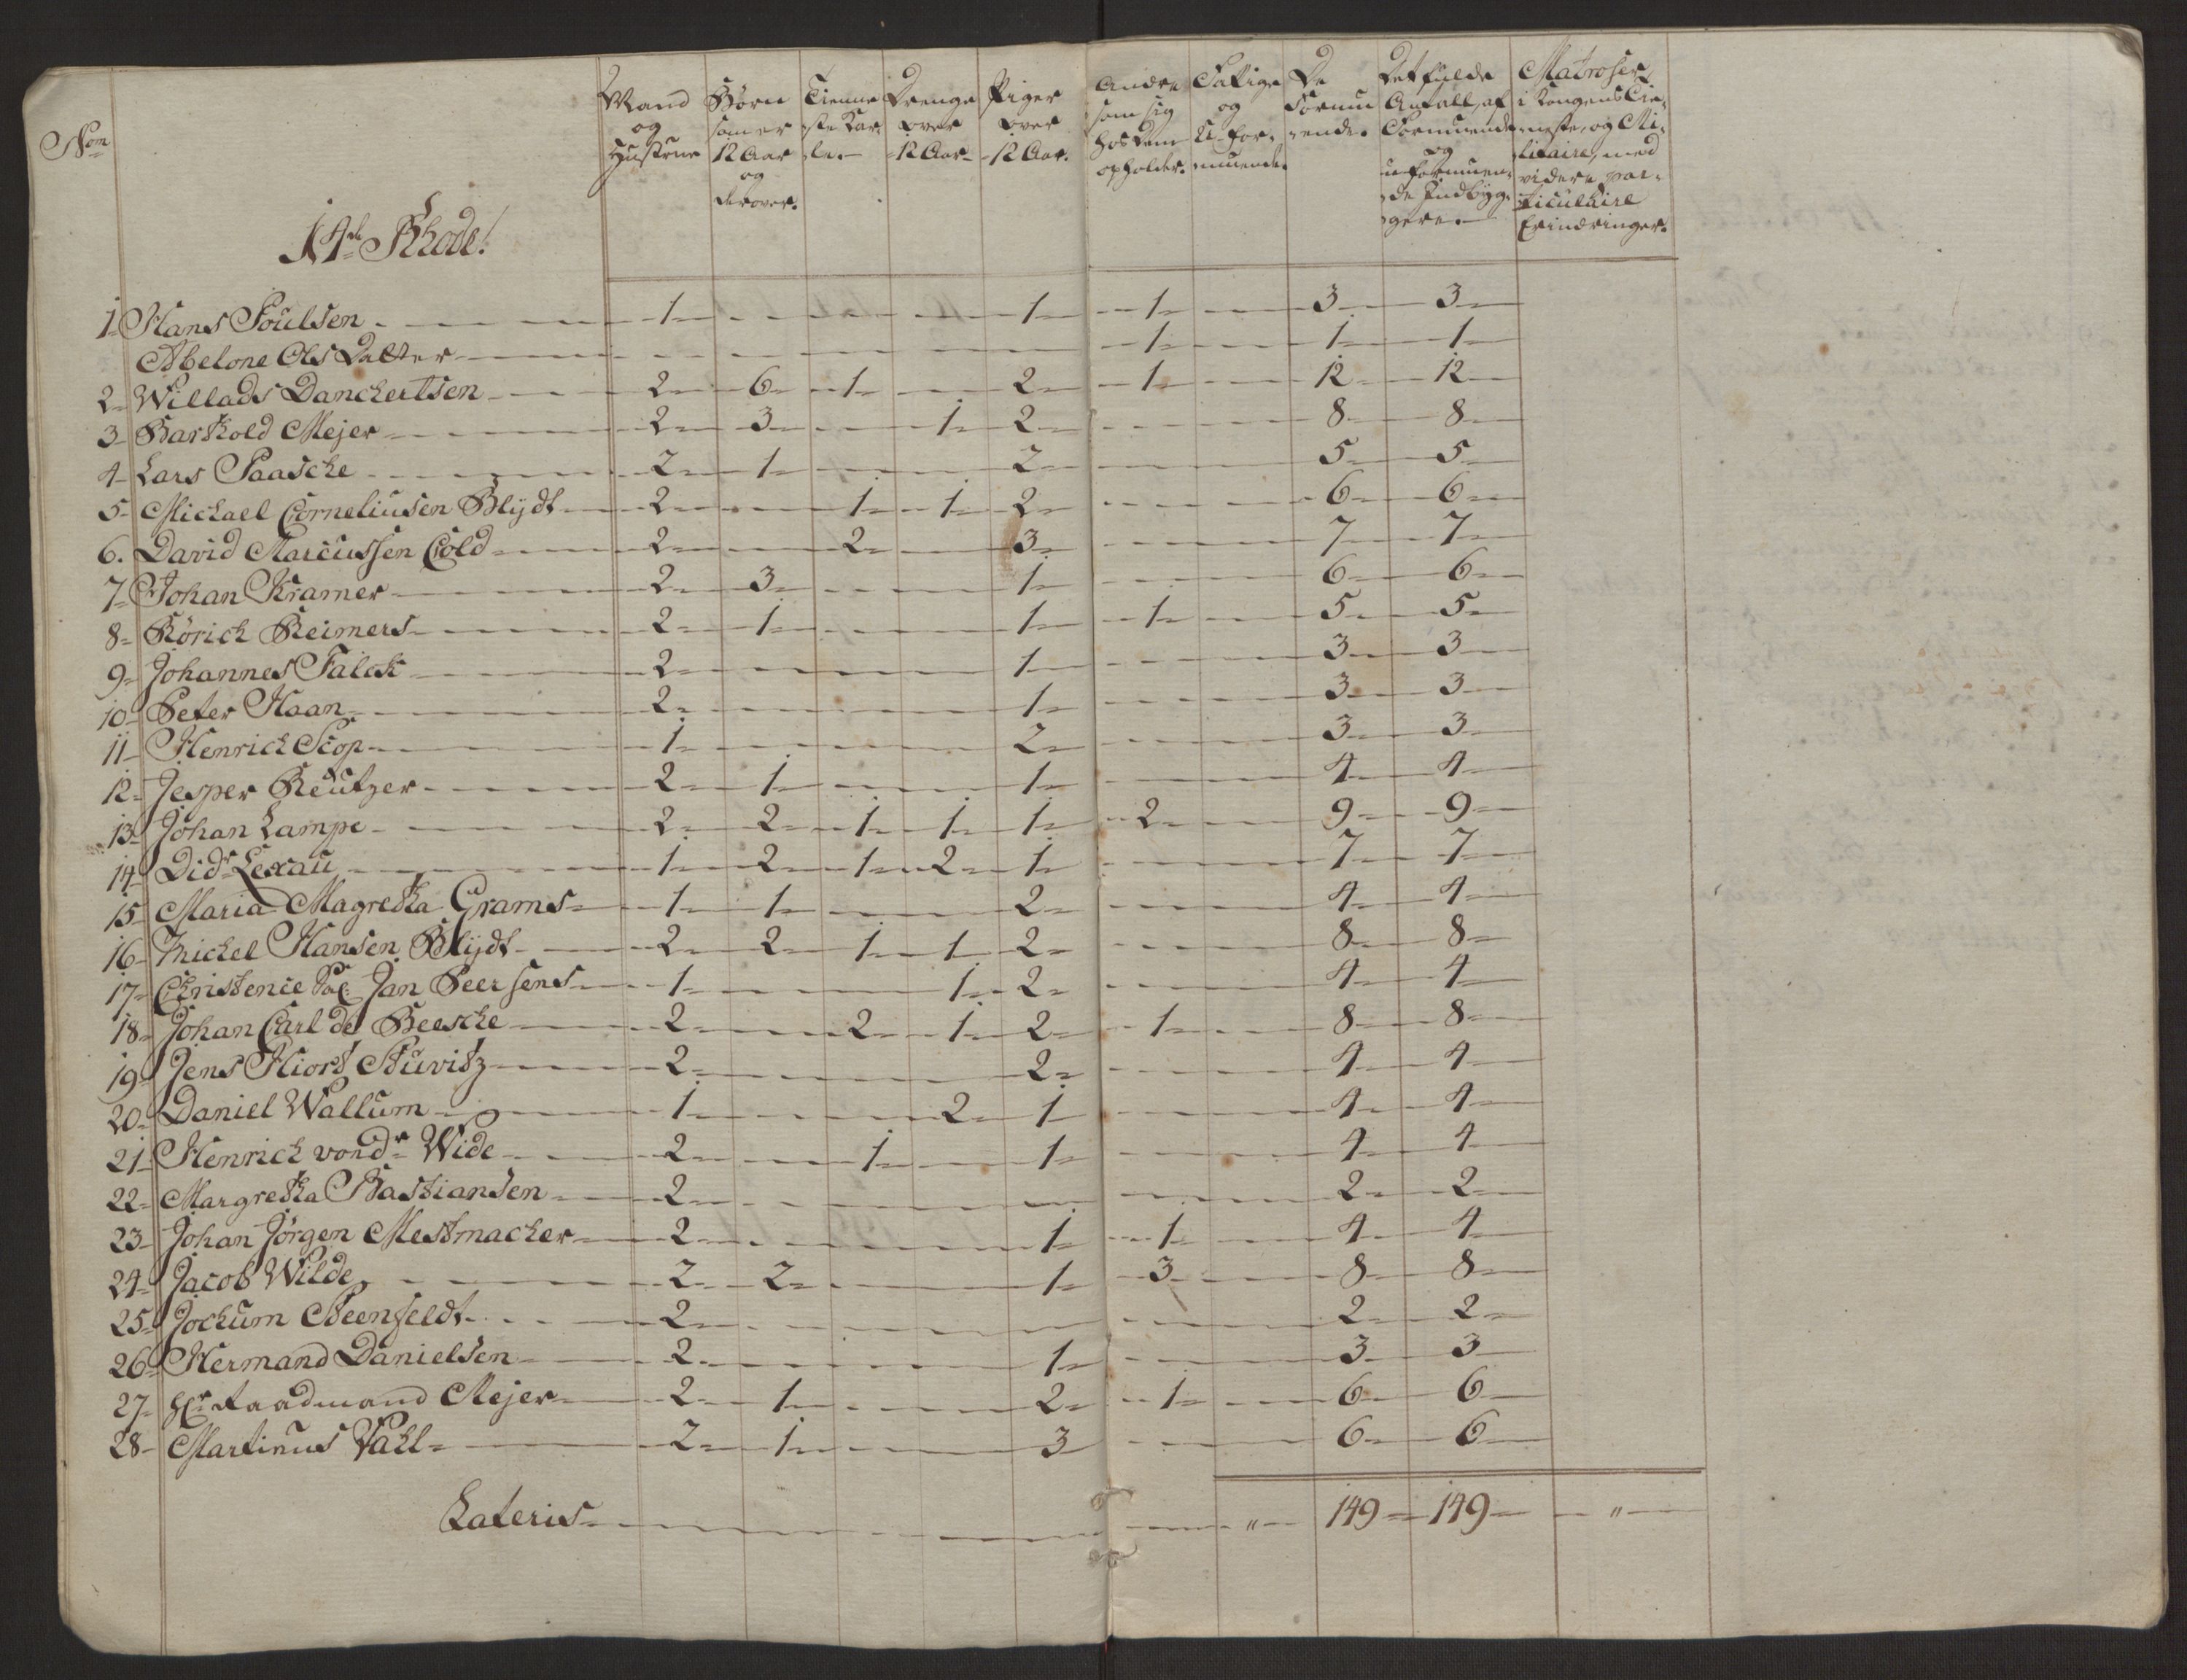 Nom
Mand og Hustrue
Børn som er 12 Aar og derover.
Tienneste Karle.
Drenge over 12 Aar
Piger over 12 Aar.
Andre som sig hos dem opholder.
Fattige og U-formuende.
De Formuende.
Det fulde Antall, af Formuende og uformuende Indbyggere.
Matroser i Kongens Tieneste, og Militaire, med videre particulaire Erindringer.
14de Rhode!
1 Hans Poulsen 1 1 1 3 3
Abelone Ols Datter 1 1 1
2 Willads Danchertsen 2 6 1 2 1 12 12
3 Barthold Mejer 2 3 1 2 8 8
4 Lars Paasche 2 1 2 5 5
5 Michael Corneliusen Blydt 2 1 1 2 6 6
6. David Marcussen Cold 2 2 3 7 7
7 Johan Kramer 2 3 1 6 6
8 Rörich Reimers 2 1 1 1 5 5
9 Johannes Falck 2 1 3 3
10 Peter Haan 2 1 3 3
11 Henrich Scop 1 2 3 3
12 Jesper Reutzer 2 1 1 4 4
13 Johan Lampe 2 2 1 1 1 2 9 9
14 Didr Lexau 1 2 1 2 1 7 7
15 Maria Magretha Grams 1 1 2 4 4
16 Michel Hansen Blydt 2 2 1 1 2 8 8
17 Christence Sal: Jan Peersens 1 1 2 4 4
18 Johan Carl de Besche 2 2 1 2 1 8 8
19 Jens Hiort Stuvitz 2 2 4 4
20 Daniel Wallum 1 2 1 4 4
21 Henrich vondr Wide 2 1 1 4 4
22 Margretha Bastiansen 2 2 2
23 Johan Jörgen Mestmacher 2 1 1 4 4
24 Jacob Wilde 2 2 1 3 8 8
25 Jochum Beenfeldt 2 2 2
26 Hermand Danielsen 2 1 3 3
27 Hr Raadmand Mejer 2 1 2 1 6 6
28 Martinus Vahl 2 1 3 6 6
Lateris " 149 149 "